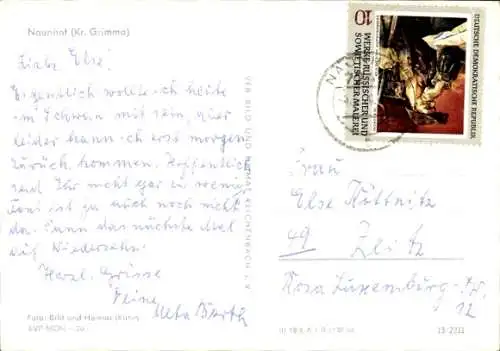 Naunhof (Kr. Grimma)
Liebe Else!
Eigentlich wollte ich heute
im Schwan mit sein, aber
leider kann ich erst morgen
zurück kommen. Hoffentlich
seid Ihr nicht gar zu wenig
Toni ist ja auch noch nicht
da. Dann das nächste Mal
auf Wiedersehn.
Herzl. Grüsse
Deine
Meta Barth
Foto: Bild und Heimat (Kühn)
VEB BILD UND HEIMAT REICHENBACH I. V.
10
WERKE RUSSISCHER UND
SOWJETISCHER MALEREI
DEUTSCHE DEMOKRATISCHE REPUBLIK
Frau
Else Küttnitz
49 Zeitz
Rosa Luxemburg-Str.
12